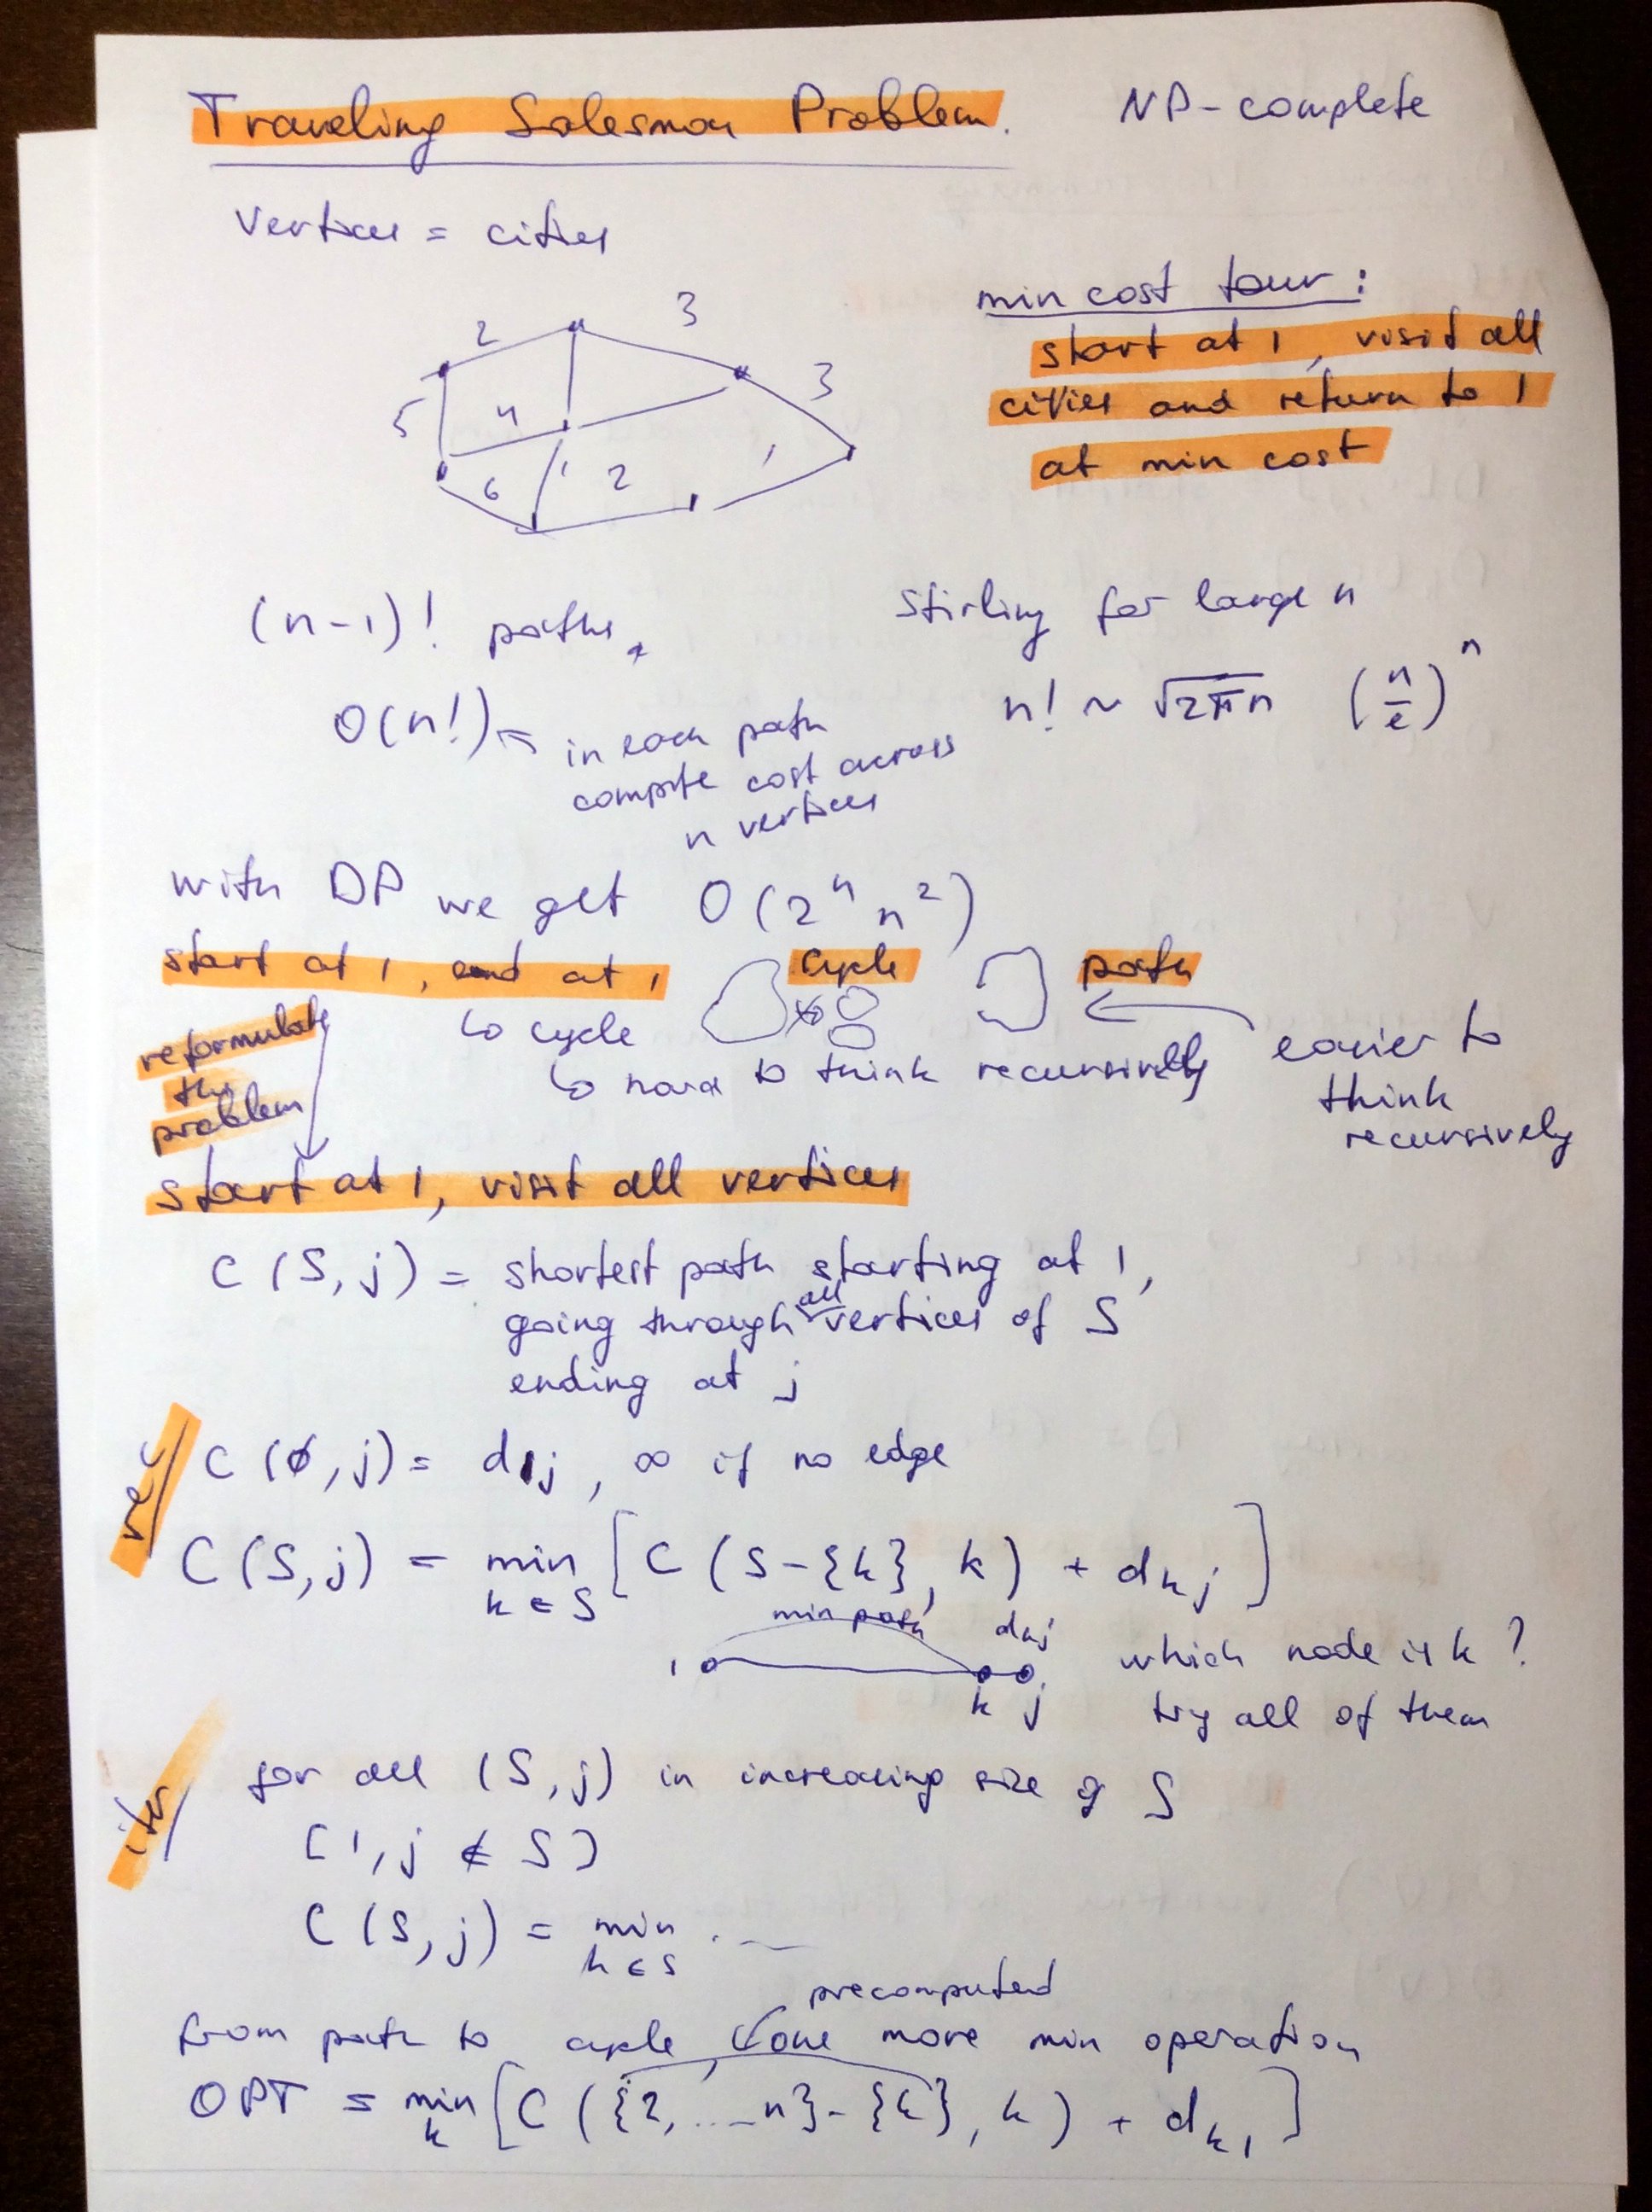 Traveling Salesman Problem. NP-complete
Vertices = cities
min cost tour:
start at 1, visit all
cities and return to 1
at min cost
2 3
5 4 3
6 1 2 1
(n-1)! paths,
O(n!) ← in each path
compute cost across
n vertices
Stirling for large n
n! ~ √2πn (n/e)^n
with DP we get O(2^n n^2)
start at 1, end at 1
↳ cycle
↳ hard to think recursively
cycle
path
easier to
think
recursively
reformulate
the
problem
start at 1, visit all vertices
C(S,j) = shortest path starting at 1,
going through all vertices of S
ending at j
rec
C(∅,j) = d1j, ∞ if no edge
C(S,j) = min k∈S [C(S-{k}, k) + dkj]
min path dkj
1 k j
which node is k?
try all of them
iter
for all (S,j) in increasing size of S
(1,j ∉ S)
C(S,j) = min k∈S ...
precomputed
from path to cycle, one more min operation
OPT = min k [C({2,...n}-{k}, k) + dk1]